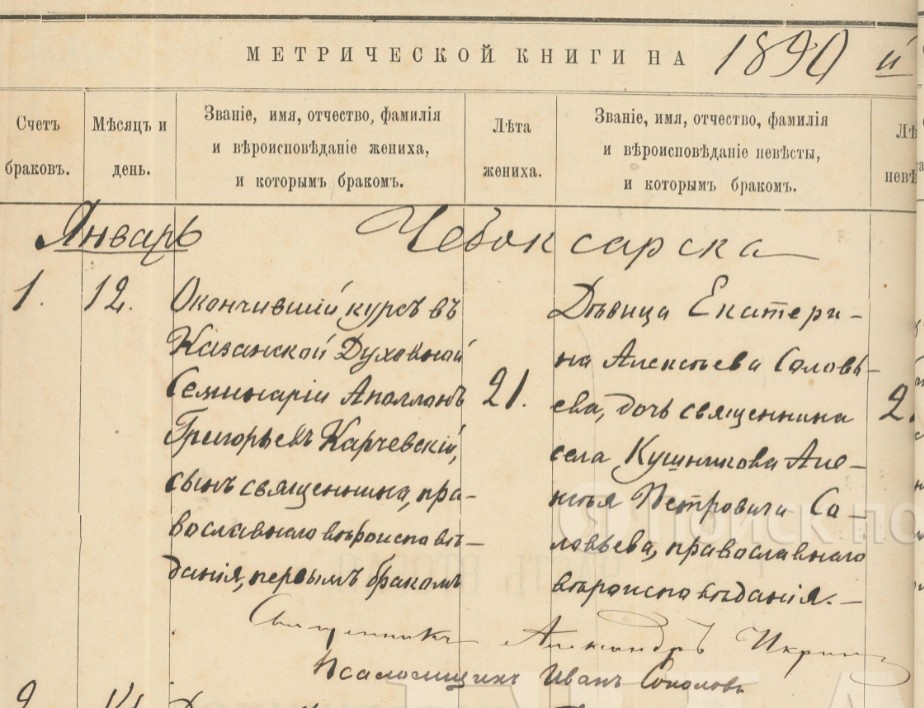 МЕТРИЧЕСКОЙ КНИГИ НА 1890 й
Счетъ браковъ.
Мѣсяцъ и день.
Званіе, имя, отчество, фамилія
и вѣроисповѣданіе жениха,
и которымъ бракомъ.
Лѣта жениха.
Званіе, имя, отчество, фамилія
и вѣроисповѣданіе невѣсты,
и которымъ бракомъ.
Январь
Чебоксарска
1.
12.
Окончившій курсъ въ
Казанской Духовной
Семинаріи Аполлонъ
Григорьевъ Карчевскій,
сынъ священника, пра-
вославнаго вѣроисповѣ-
данія, первымъ бракомъ
21.
Дѣвица Екатери-
на Алексѣева Соловь-
ева, дочь священника
села Кушникова Але-
ксѣя Петровича Со-
ловьева, православнаго
вѣроисповѣданія.—
Священникъ Александръ
Псаломщикъ Иванъ Соколовъ